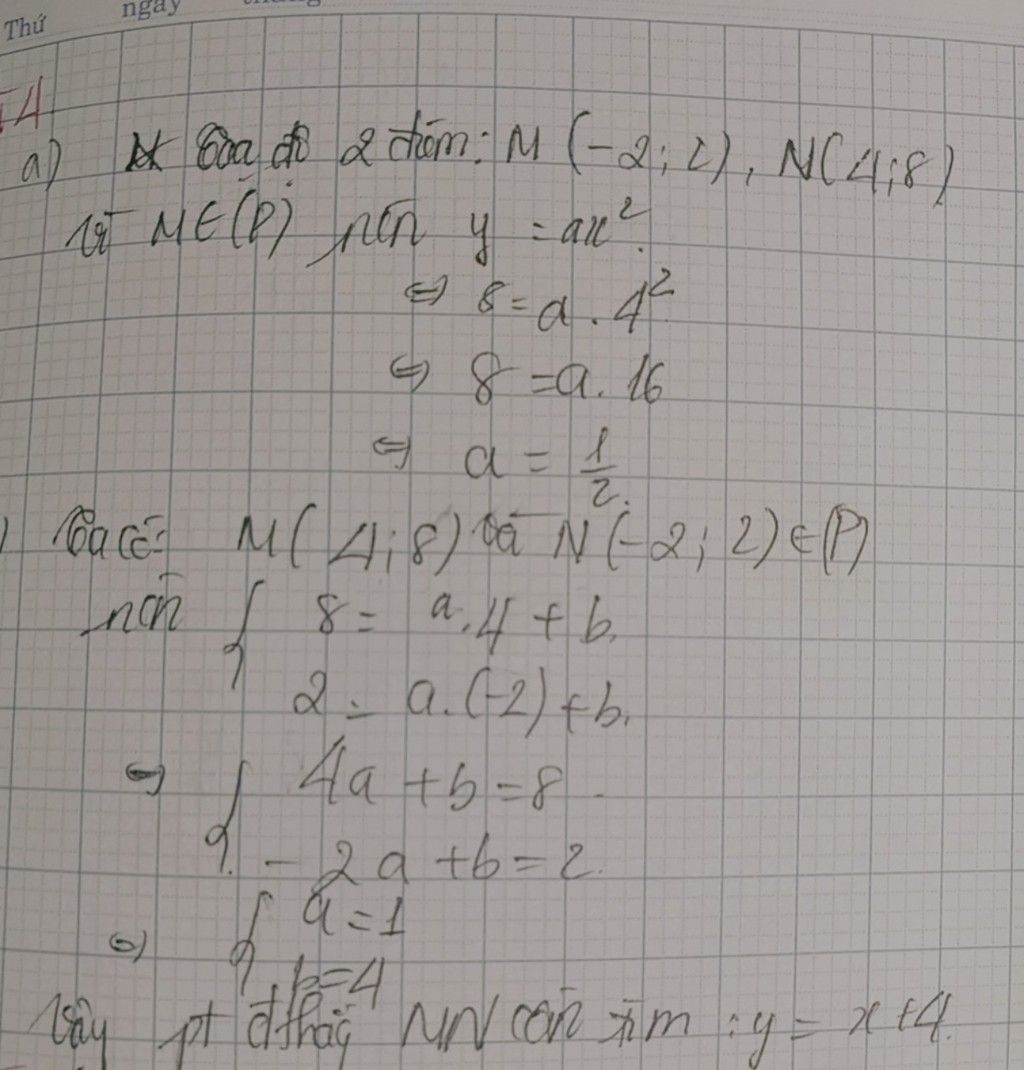 Thứ ngày tháng
T4
a) Tọa độ 2 điểm: M (-2; 2), N(4;8)
Vì M∈(P) nên y = ax².
⇔ 8 = a . 4²
⇔ 8 = a. 16
⇔ a = 1/2.
) Ta có: M( 4; 8) và N (-2; 2) ∈ (P)
nên { 8 = a.4 + b.
2 = a.(-2) + b.
⇔ { 4a + b = 8
- 2a + b = 2.
⇔ { a = 1
b = 4
Vậy pt đthẳg MN cần tìm : y = x + 4.